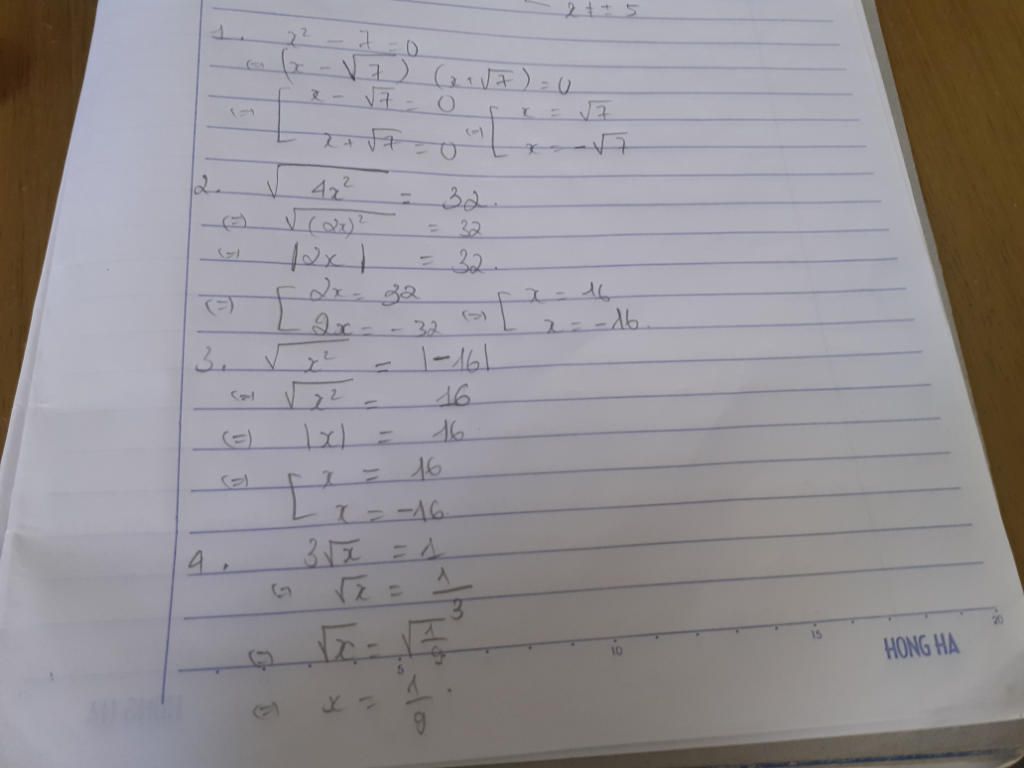 2
1. x² - 7 = 0
(=) (x - √7) (x + √7) = 0
(=) [ x - √7 = 0 (=) [ x = √7
x + √7 = 0 x = -√7
2. √4x² = 32.
(=) √(2x)² = 32
(=) |2x| = 32.
(=) [ 2x = 32 (=) [ x = 16
2x = - 32 x = -16.
3. √x² = |-16|
(=) √x² = 16
(=) |x| = 16
(=) [ x = 16
x = -16.
4. 3√x = 1
(=) √x = 1/3
(=) √x = √1/9
5 10 15 20
HONG HA
(=) x = 1/9.